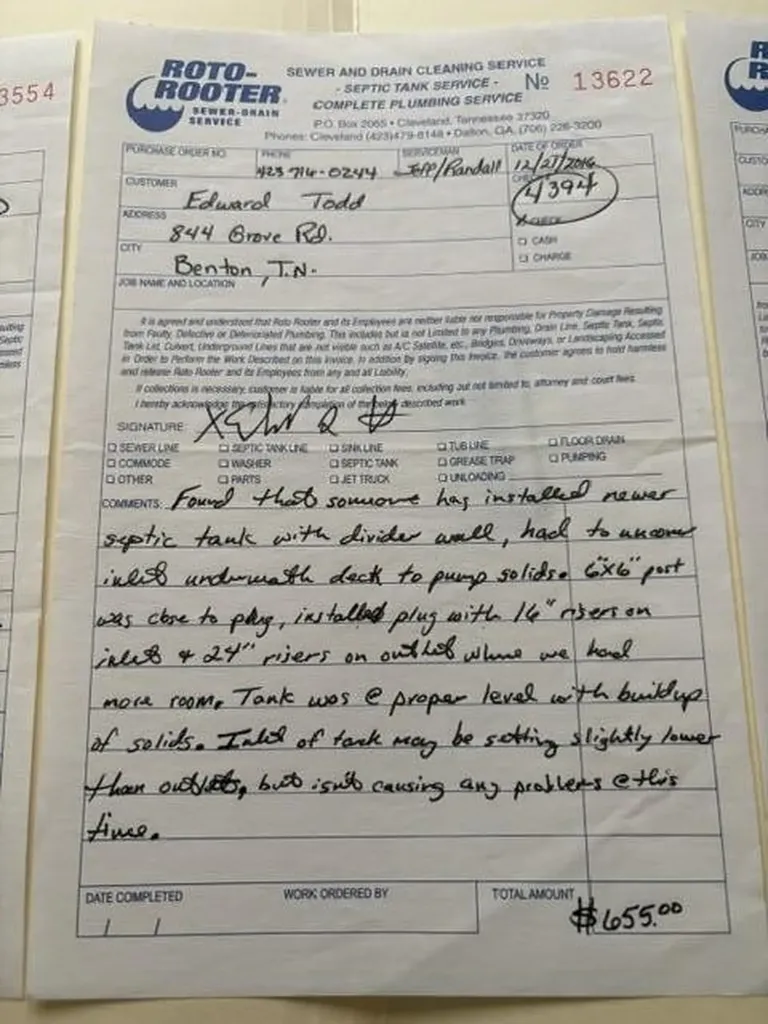 3554
ROTO-ROOTER
SEWER-DRAIN SERVICE
SEWER AND DRAIN CLEANING SERVICE
- SEPTIC TANK SERVICE -
COMPLETE PLUMBING SERVICE
No 13622
P.O. Box 2065 • Cleveland, Tennessee 37320
Phones: Cleveland (423)479-8148 • Dalton, GA. (706) 226-3200
PURCHASE ORDER NO. PHONE SERVICEMAN DATE OF ORDER
423 716-0244 Jeff/Randall 12/27/2016
CUSTOMER Edward Todd
4394
ADDRESS 844 Grove Rd.
X CHECK
CASH
CHARGE
CITY Benton, T.N.
JOB NAME AND LOCATION
It is agreed and understood that Roto Rooter and its Employees are neither liable nor responsible for Property Damage Resulting
from Faulty, Defective or Deteriorated Plumbing. This includes but is not Limited to any Plumbing, Drain Line, Septic Tank, Septic
Tank Lid, Culvert, Underground Lines that are not visible such as A/C Satellite, etc., Bridges, Driveways, or Landscaping Accessed
in Order to Perform the Work Described on this Invoice. In addition by signing this Invoice, the customer agrees to hold harmless
and release Roto Rooter and its Employees from any and all Liability.
If collections is necessary, customer is liable for all collection fees, including but not limited to, attorney and court fees.
I hereby acknowledge the satisfactory completion of the below described work.
SIGNATURE: X
SEWER LINE SEPTIC TANK LINE SINK LINE TUB LINE FLOOR DRAIN
COMMODE WASHER SEPTIC TANK GREASE TRAP PUMPING
OTHER PARTS JET TRUCK UNLOADING
COMMENTS: Found that someone has installed newer
septic tank with divider wall, had to uncover
inlet underneath deck to pump solids. 6"x6" post
was close to plug, installed plug with 16" risers on
inlet & 24" risers on outlet where we had
more room. Tank was @ proper level with buildup
of solids. Inlet of tank may be setting slightly lower
than outlets, but isn't causing any problems @ this
time.
DATE COMPLETED WORK ORDERED BY TOTAL AMOUNT
/ / $655.00